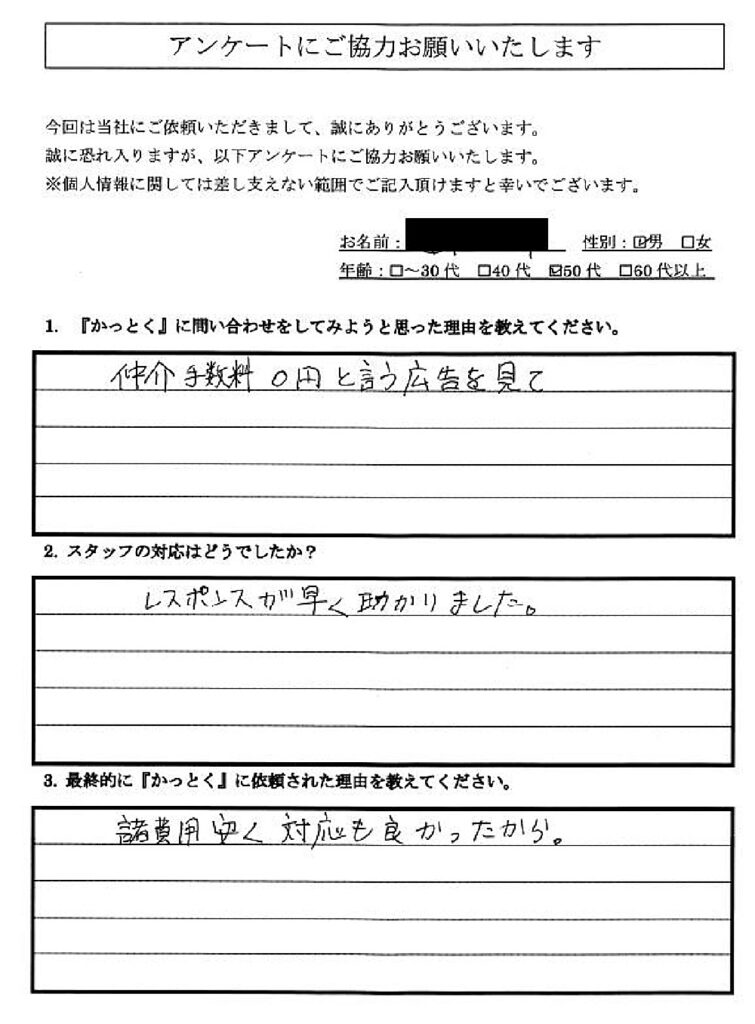 アンケートにご協力お願いいたします
今回は当社にご依頼いただきまして、誠にありがとうございます。
誠に恐れ入りますが、以下アンケートにご協力お願いいたします。
※個人情報に関しては差し支えない範囲でご記入頂けますと幸いでございます。
お名前： 性別：☑男 □女
年齢：□～30代 □40代 ☑50代 □60代以上
1. 『かっとく』に問い合わせをしてみようと思った理由を教えてください。
仲介手数料0円と言う広告を見て
2. スタッフの対応はどうでしたか？
レスポンスが早く助かりました。
3. 最終的に『かっとく』に依頼された理由を教えてください。
諸費用安く対応も良かったから。